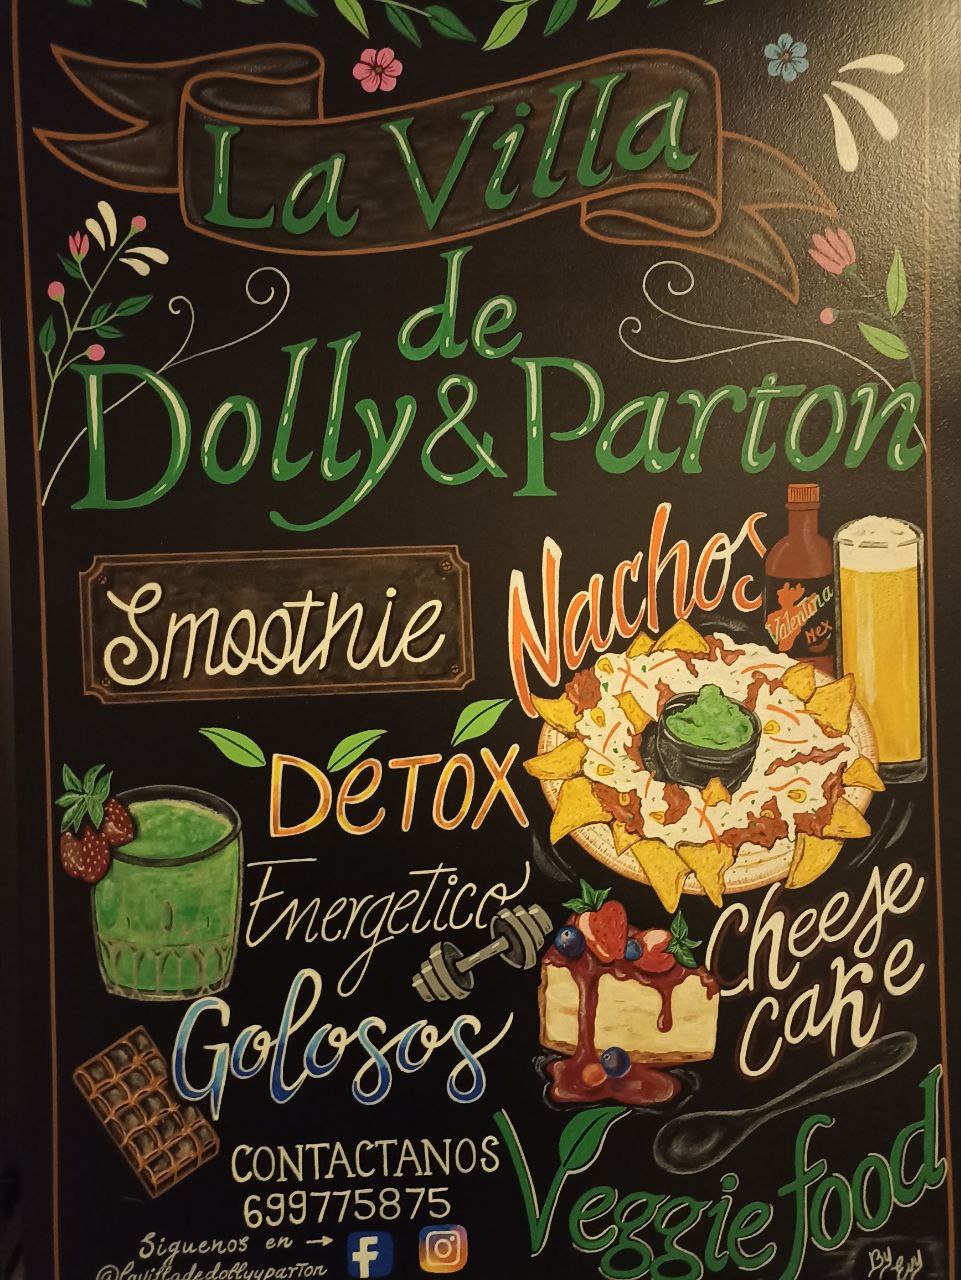 La Villa
de
Dolly & Parton
Smoothie
Nachos
Valentina
Mex
Detox
Energetico
Golosos
Cheese
cake
CONTACTANOS
699775875
Siguenos en →
@lavilladedollyyparton
Veggie food
By